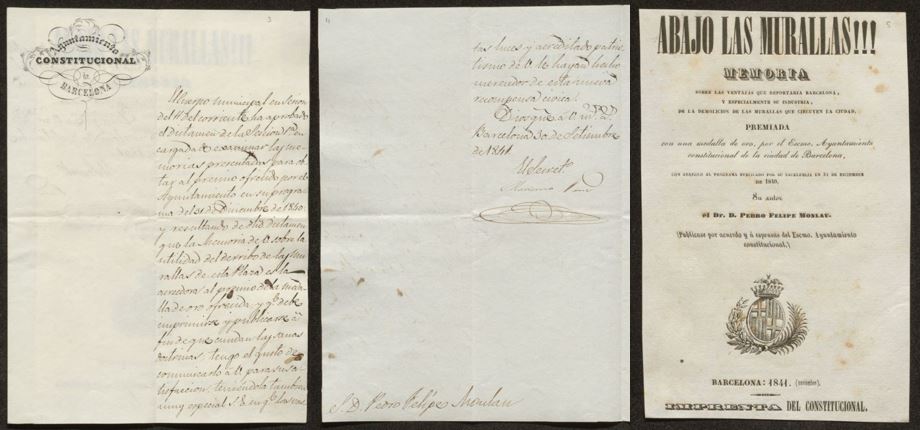 3
Ayuntamiento
CONSTITUCIONAL
de
BARCELONA
El cuerpo municipal en sesion
del 4 del corriente ha aprobado
el dictamen de la Seccion en
cargada de examinar las me
morias presentadas para ob
tar al premio ofrecido por el
Ayuntamiento en su progra
ma del 31 de Diciembre de 1840;
y resultando de dho dictamen
que la Memoria de V. sobre la
utilidad del derribo de las mu
rallas de esta Plaza es la
acreedora al premio de la meda
lla de oro ofrecida, y qe debe
imprimirse y publicarse á
fin de que cundan las sanas
doctrinas, tengo el gusto de
comunicarlo á V. para su sa
tisfaccion, teniéndolo tambien
muy especial S. E. en qe las
4
tas luces y acreditado patrio
tismo de V. le hayan hecho
merecedor de esta nueva
recompensa cívica.
Dios gue á V. ms. as.
Barcelona 30 de Setiembre
de 1841.
S. D. Pedro Felipe Monlau
5
ABAJO LAS MURALLAS!!!
MEMORIA
SOBRE LAS VENTAJAS QUE REPORTARIA BARCELONA,
Y ESPECIALMENTE SU INDUSTRIA,
DE LA DEMOLICION DE LAS MURALLAS QUE CIRCUYEN LA CIUDAD,
PREMIADA
con una medalla de oro, por el Escmo. Ayuntamiento
constitucional de la ciudad de Barcelona,
CON ARREGLO AL PROGRAMA PUBLICADO POR SU ESCELENCIA EN 31 DE DICIEMBRE
DE 1840.
Su autor
el Dr. D. PEDRO FELIPE MONLAU.
(Publícase por acuerdo y á espensas del Escmo. Ayuntamiento
constitucional.)
BARCELONA: 1841. (setiembre).
IMPRENTA DEL CONSTITUCIONAL.